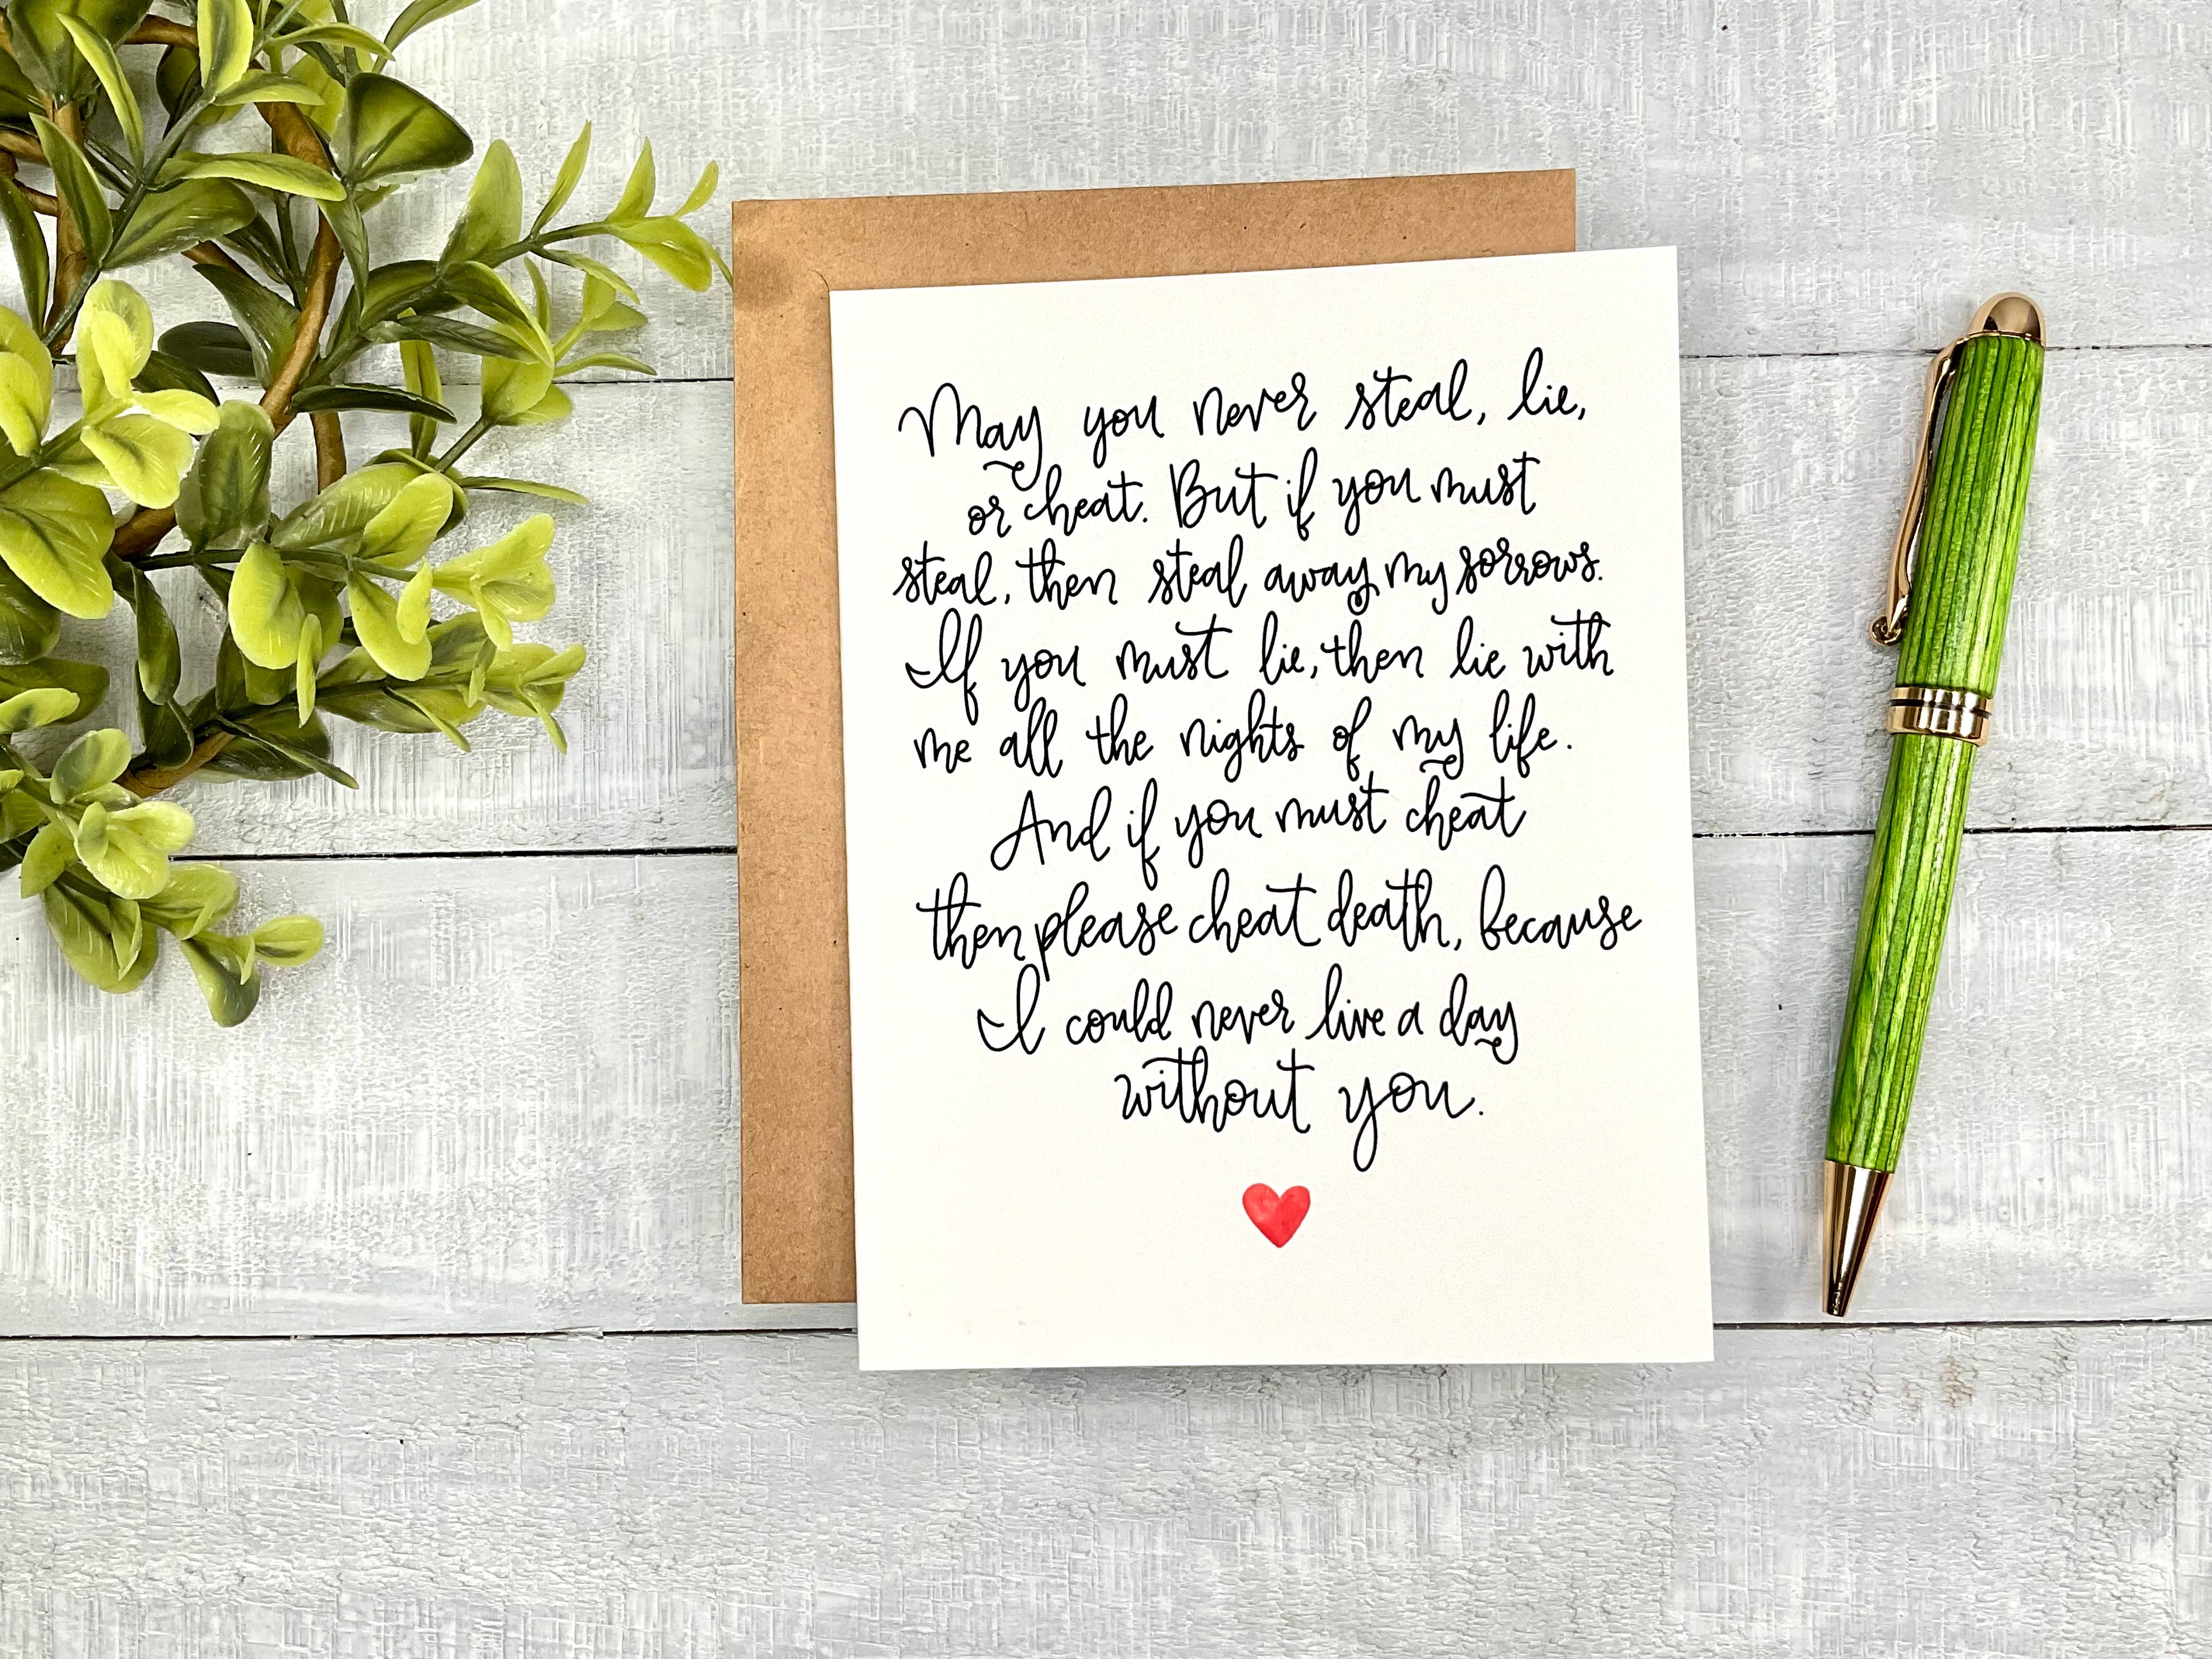 May you never steal, lie,
or cheat. But if you must
steal, then steal away my sorrows.
If you must lie, then lie with
me all the nights of my life.
And if you must cheat
then please cheat death, because
I could never live a day
without you.